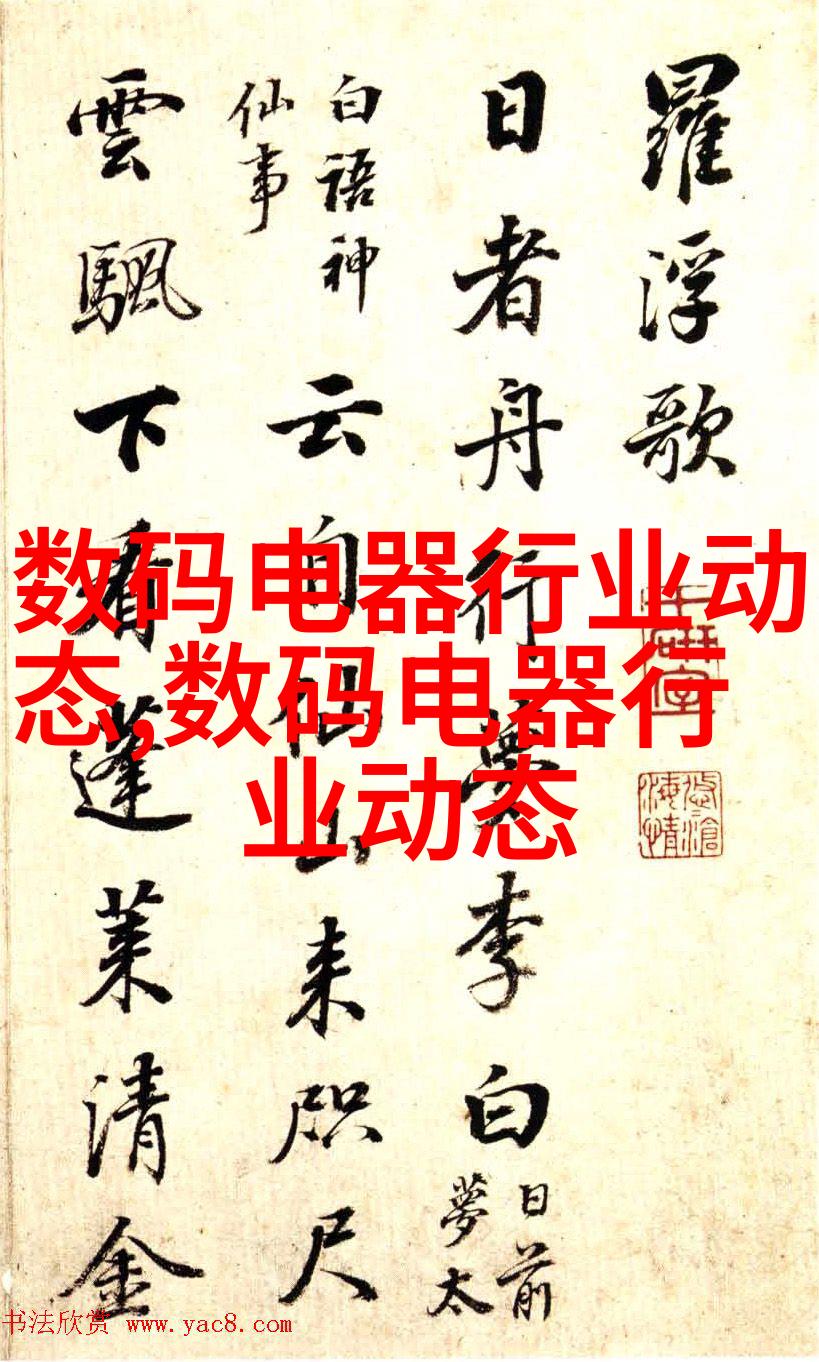 羅浮歌
日者舟行夢李白
日前
夢太
白語神
仙事
云自仙山来咫尺
雲颿下看蓬莱清金
数码电器行业动
态,数码电器行
业动态
书法欣赏 www.yac8.com